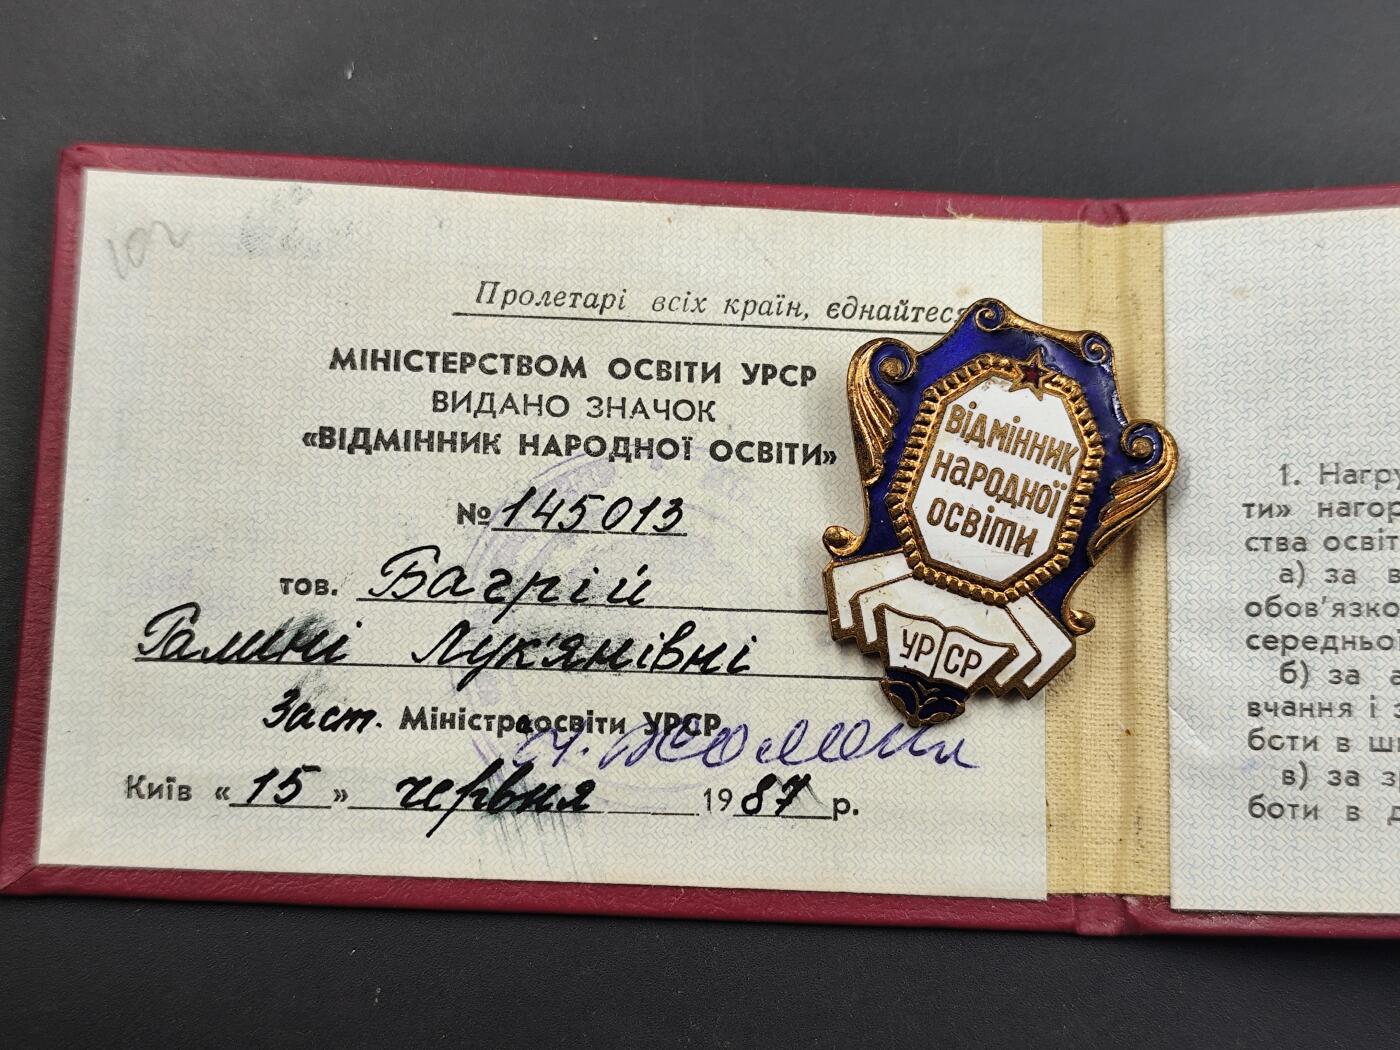 102
Пролетарі всіх країн, єднайтеся
МІНІСТЕРСТВОМ ОСВІТИ УРСР
ВИДАНО ЗНАЧОК
«ВІДМІННИК НАРОДНОЇ ОСВІТИ»
№ 145013
тов. Багрій
Галині Лук'янівні
Заст. Міністра освіти УРСР
Київ «15» червня 1987 р.
ВІДМІННИК
НАРОДНОЇ
ОСВІТИ
УРСР
1. Нагру
ти» нагор
ства освіт
а) за в
обов'язко
середньо
б) за а
вчання і з
боти в ш
в) за з
боти в д